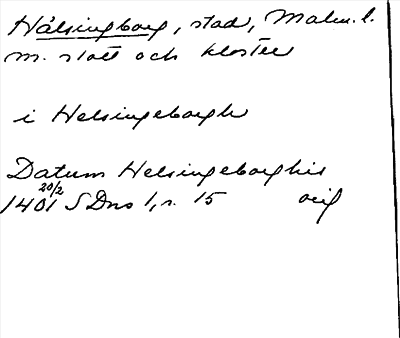 Hälsingborg, stad, Malm. l.
m. slott och kloster
i Helsingeborgh
Datum Helsingeborghis
1401 20/2 SDns 1, s. 15 orig